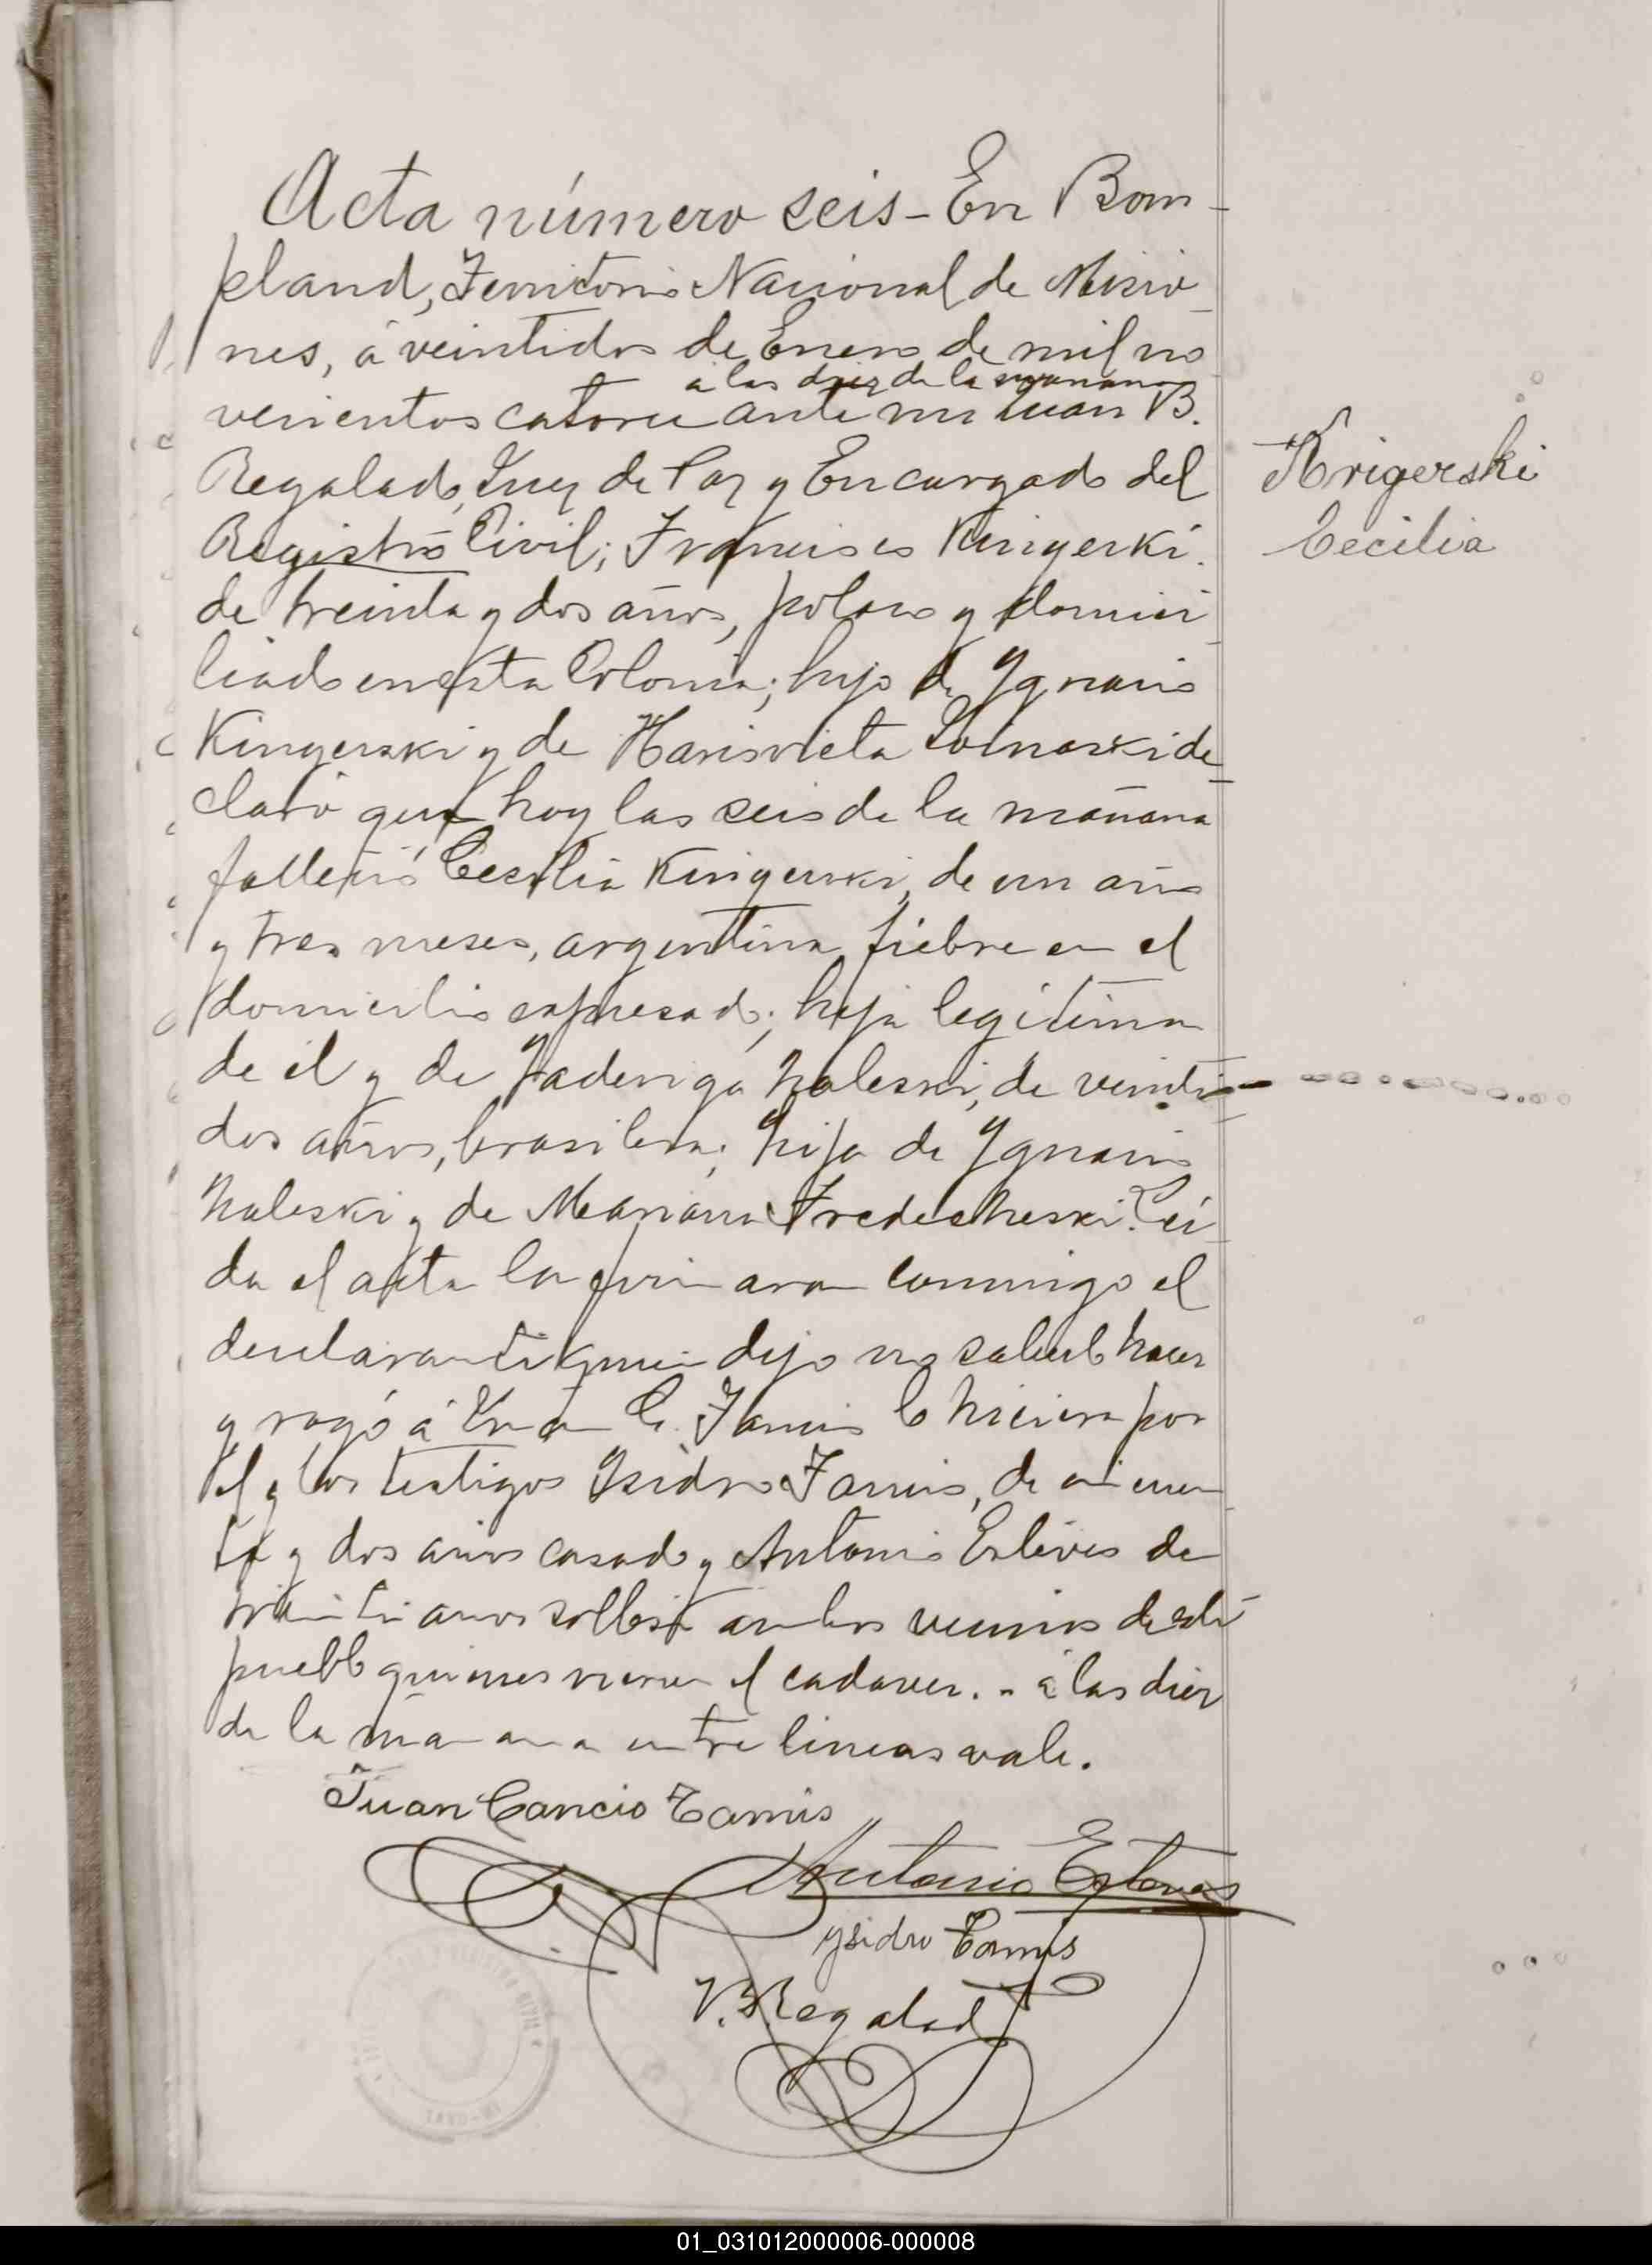 Acta número seis - En Bom-
pland, Territorio Nacional de Misio-
nes, á veintidos de Enero de mil no
á las diez de la mañana
vecientos catorce ante mi Juan B.
Regalado, Juez de Paz y Encargado del
Registro Civil; Francisco Kingerki
de treinta y dos años, polaco y domici
liado en esta Colonia; hijo de Ygnacio
Kingerski y de de-
claró que hoy las seis de la mañana
falleció Cecilia Kingerski, de un año
y tres meses, argentina, fiebre en el
domicilio expresado; hija legítima
de él y de Jaderiga Naleski, de veinti-
dos años, brasilera; hija de Ygnacio
Naleski y de Mariana Leí-
da el acta la firmaron conmigo el
declarante quien dijo no saberlo hacer
y rogó á Juan C. Tamis lo hiciera por
él y los testigos Ysidro Tamis, de cincuen-
ta y dos años casado y Antonio Esteves de
treinta años soltero ambos vecinos de este
pueblo quienes vieron el cadaver. - á las diez
de la mañana entre lineas vale.
Juan Cancio Tamis
Antonio Esteves
Ysidro Tamis
J. B. Regalado
Krigerski
Cecilia
01_031012000006-000008